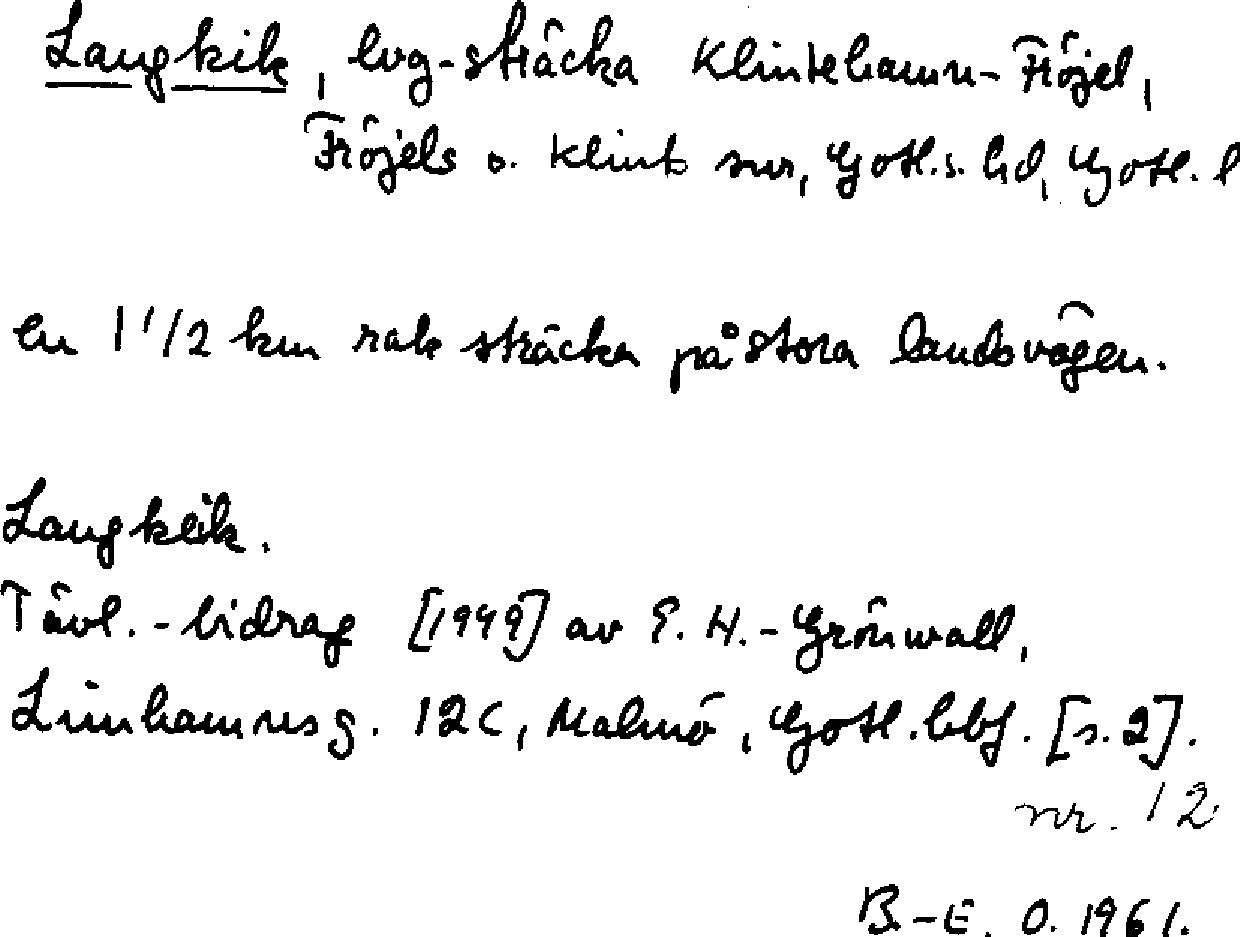 Langkik, lvg-sträcka Klintehamn-Fröjel,
Fröjels o. Klinte snr, Gotl.s. hd, Gotl. l
en 1 1/2 km rak sträcka på stora landsvägen.
Langkeik.
Tävl.-bidrag [1949] av E. H.-Grönwall,
Limhamnsg. 12C, Malmö, Gotl. hbf. [s. 2].
nr. 12
B.-E. O. 1961.